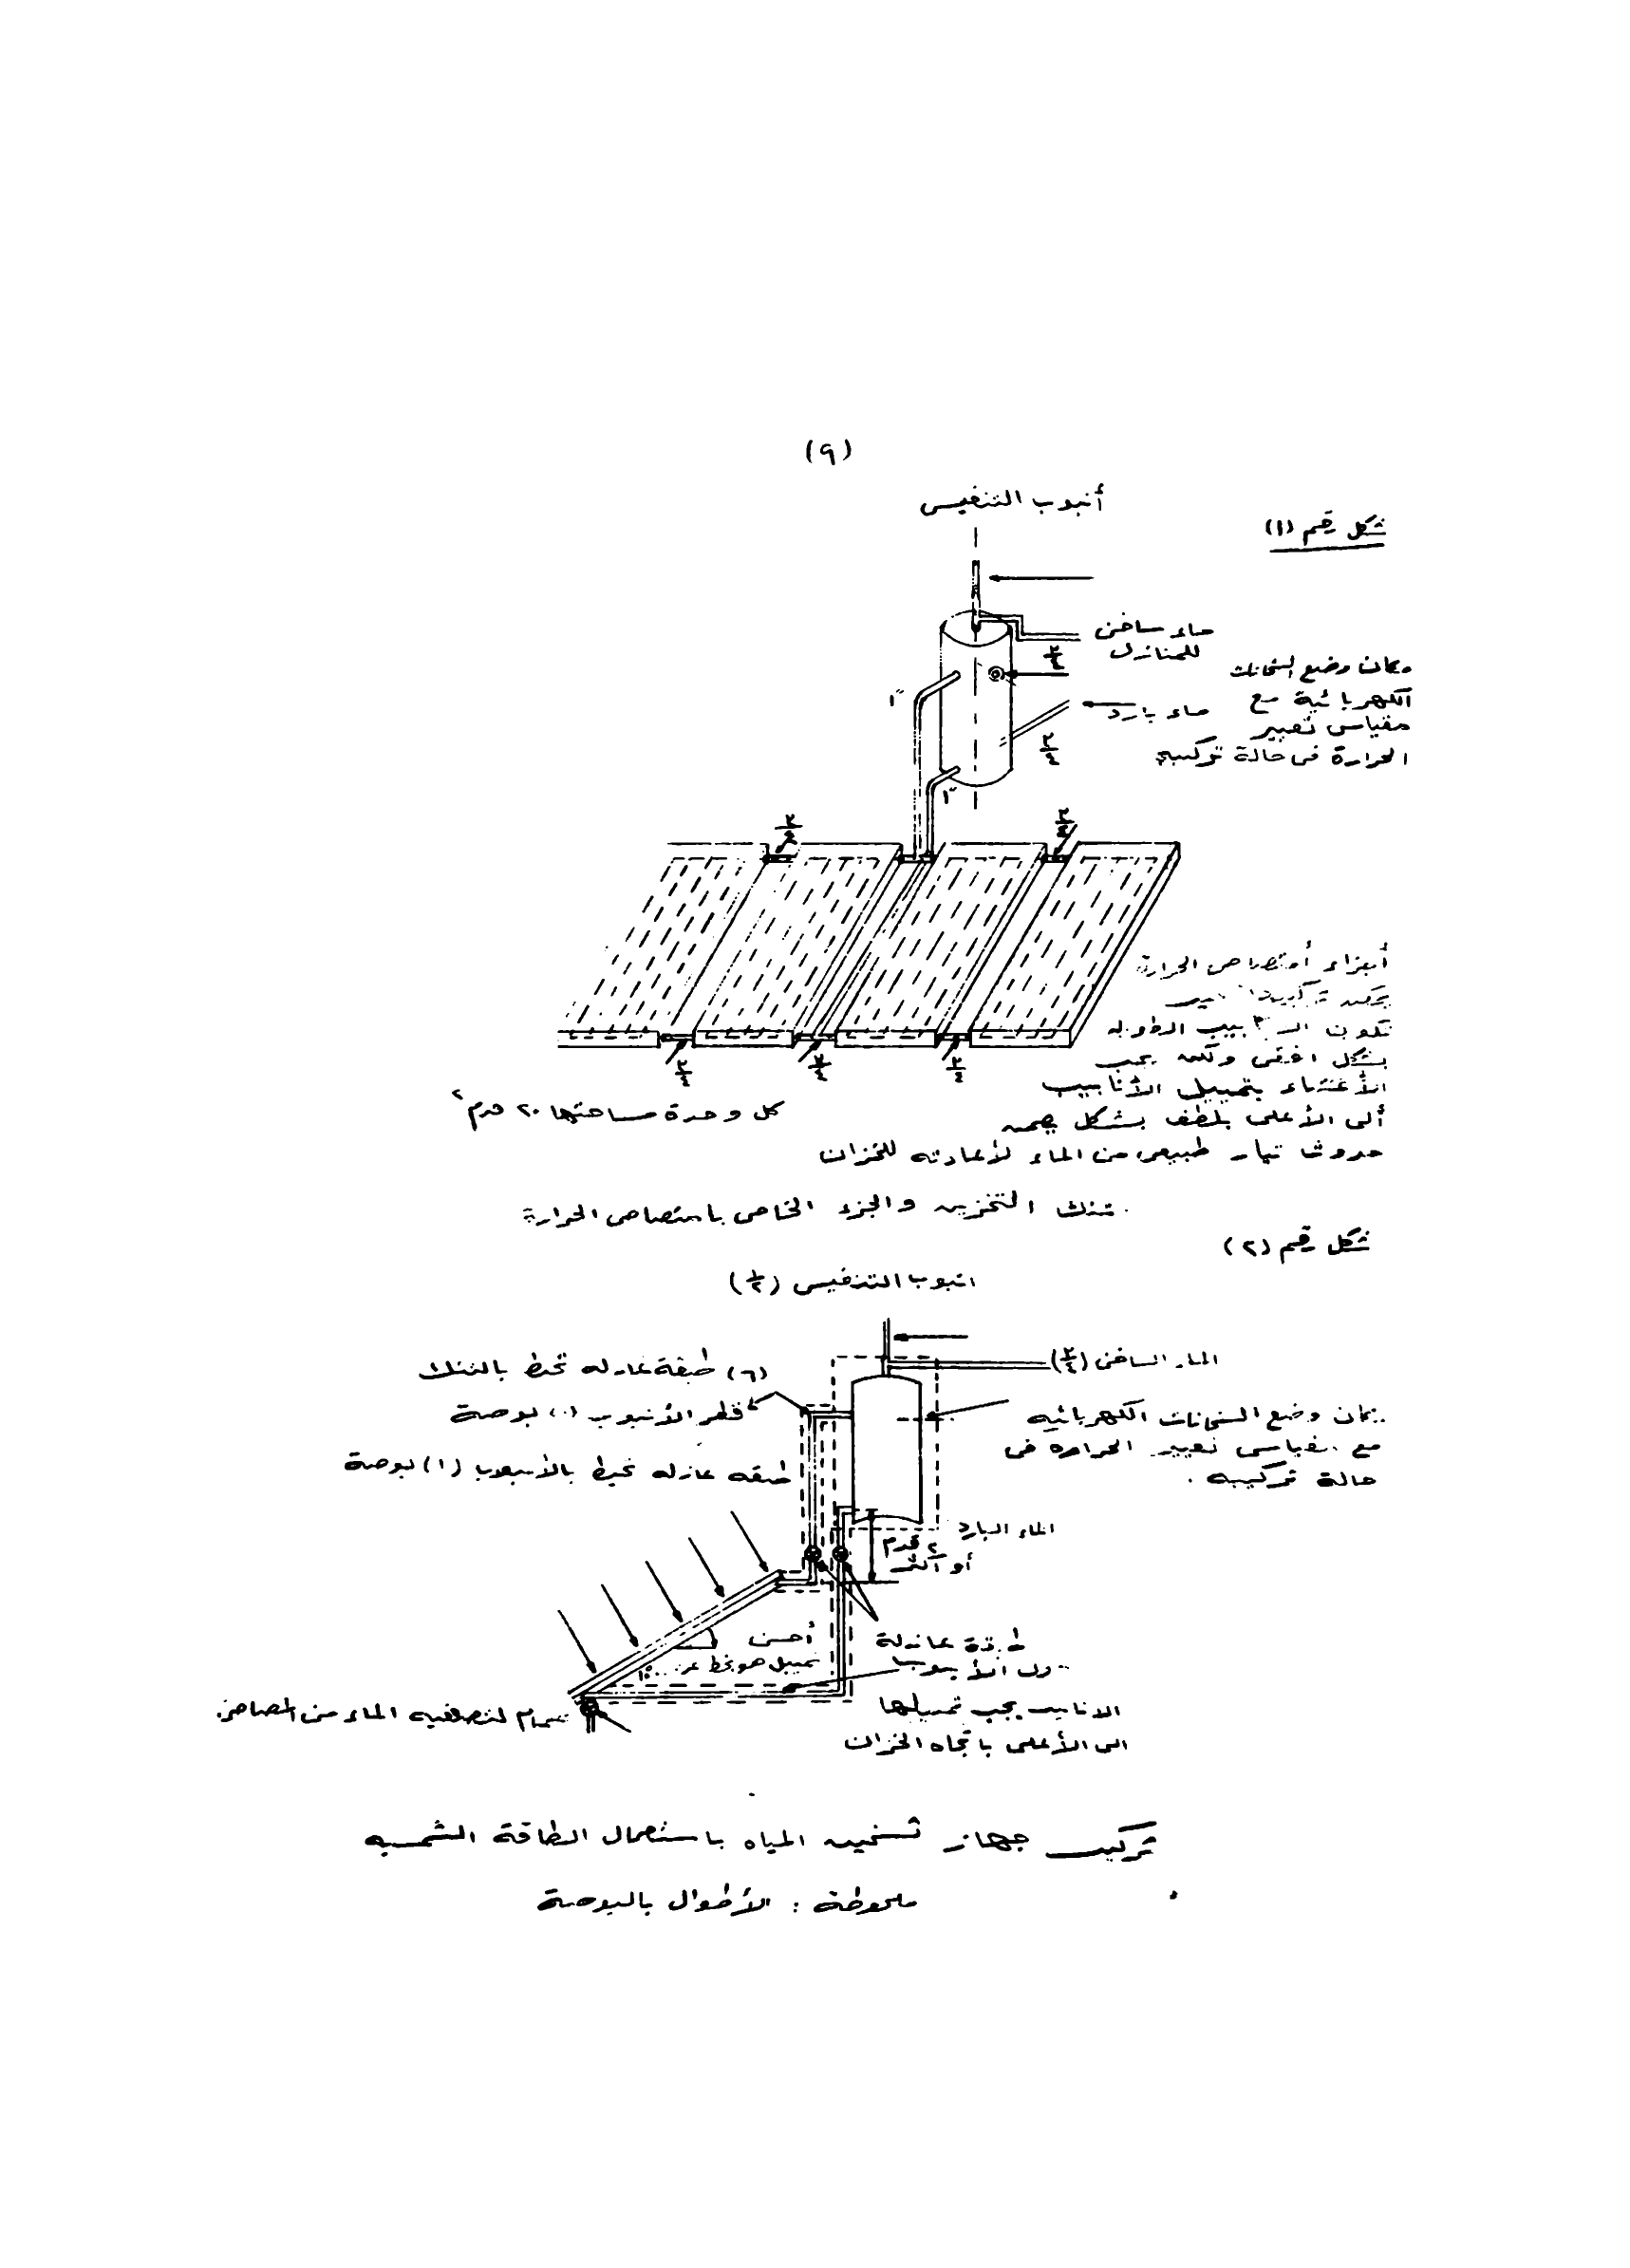 (٩)
أنبوب التنفيس
شكل رقم (١)
ماء ساخن
للمنازل
٣/٤
مكان وضع السخانات
الكهربائية مع
مقياس تعيير
الحرارة في حالة تركيبه
ماء بارد
٣/٤
١"
١"
٣/٤
٣/٤
أجزاء أمتصاص الحرارة
تكون الطوله
بشكل افقي ولكن يجب
الأعتناء بتمييل الأنابيب
ألى الأعلى بلطف بشكل يضمن
حدوث تيار طبيعي من الماء لأعادته للخزان
٣/٤
٣/٤
٣/٤
كل وحدة مساحتها ٢٠ قدم٢
تنك التخزين والجزء الخاص بامتصاص الحرارة
شكل رقم (٢)
انبوب التنفيس (١/٢)
الماء الساخن (٣/٤)
(٦) طبقة عازله تحيط بالتنك
قطر الأنبوب (١) بوصة
طبقه عازله تحيط بالأنبوب (١) بوصة
مكان وضع السخانات الكهربائيه
مع مقياس تعيير الحراره في
حالة تركيبه .
الماء البارد
٢ قدم
أو أكثر
أحسن
تمييل هو خط عرض
طبقة عازلة
حول الأنبوب
الانابيب يجب تمييلها
الى الأعلى باتجاه الخزان
صمام لتصفيه الماء من الصاخن.
تركيب جهاز تسخين المياه باستعمال الطاقة الشمسيه
ملحوظة : الأطوال بالبوصة